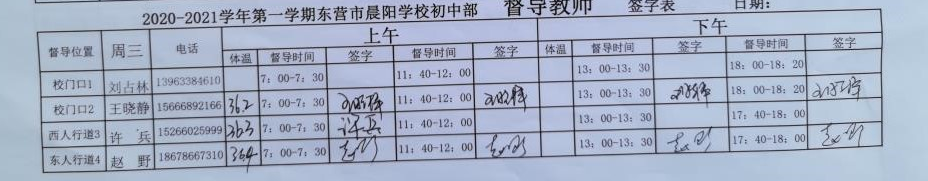 2020-2021学年第一学期东营市晨阳学校初中部 督导教师 签字表 日期:
上午 下午
督导位置 周三 电话 体温 督导时间 签字 督导时间 签字 督导时间 签字 督导时间 签字
校门口1 刘占林 13963384610 7:00-7:30 11:40-12:00 13:00-13:30 18:00-18:20
校门口2 王晓静 15666892166 362 7:00-7:30 11:40-12:00 13:00-13:30 18:00-18:20
西人行道3 许 兵 15266025999 363 7:00-7:30 许兵 11:40-12:00 13:00-13:30 17:40-18:00
东人行道4 赵 野 18678667310 364 7:00-7:30 11:40-12:00 13:00-13:30 17:40-18:00